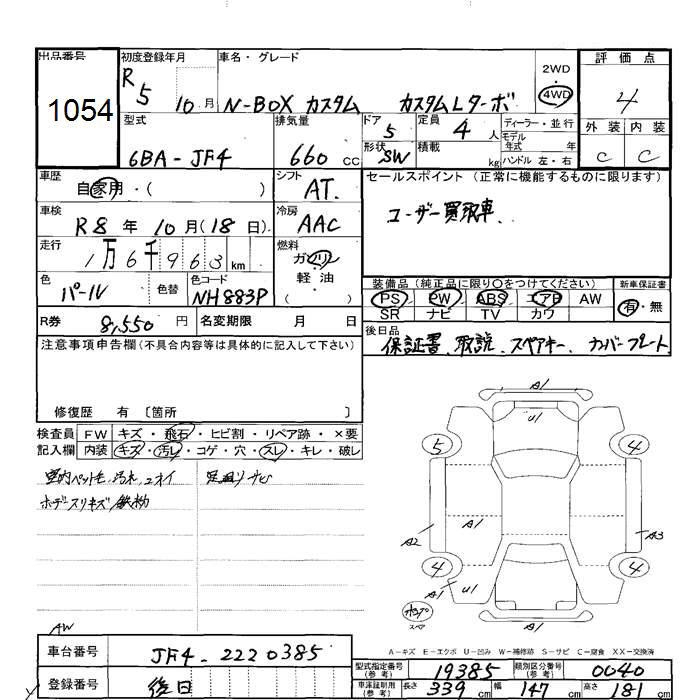 出品番号
1054
初度登録年月
R5 10月
車名・グレード
N-BOX カスタム カスタムLターボ
2WD
4WD
評価点
4
外装 内装
C C
型式
6BA-JF4
排気量
660 CC
ドア
5
形状
SW
定員
4 人
積載
kg
ディーラー・並行
モデル年式 年
ハンドル 左・右
車歴
自家用・( )
シフト
AT
セールスポイント (正常に機能するものに限ります)
ユーザー買取車、
車検
R8年 10月(18日)
冷房
AAC
走行
1万6千963km
燃料
ガソリン
軽油
( )
色
パール
色替
色コード
NH883P
装備品 (純正品に限り〇をつけてください)
PS PW ABS エアB AW
SR ナビ TV カワ
新車保証書
有・無
R券 8,550 円
名変期限 月 日
後日品
保証書、取説、スペアキー、カバープレート
注意事項申告欄(不具合内容等は具体的に記入して下さい)
修復歴 有 〔箇所 〕
検査員
記入欄
FW キズ・飛石・ヒビ割・リペア跡・×要
内装 キズ・汚レ・コゲ・穴・スレ・キレ・破レ
室内ペット毛、汚れ、ニオイ
ボデースリキズ/鉄粉
足廻りサビ
A1
U1
5
4
A1
A1
A2
A3
4
4
A1
U1
A1
スペア
AW
A-キズ E-エクボ U-凹み W-補修跡 S-サビ C-腐食 XX-交換済
車台番号
JF4-2220385
登録番号
後日
型式指定番号
(参考)
19385
類別区分番号
(参考)
0040
車庫証明用
(参考)
長さ 339 cm 幅 147 cm 高さ 181 cm